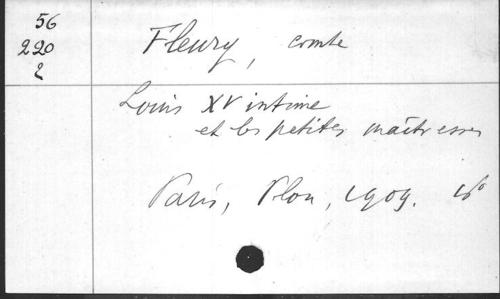 56
220
2
Fleury, comte
Louis XV intime
et les petites maîtresses
Paris, Plon, 1909. 16°